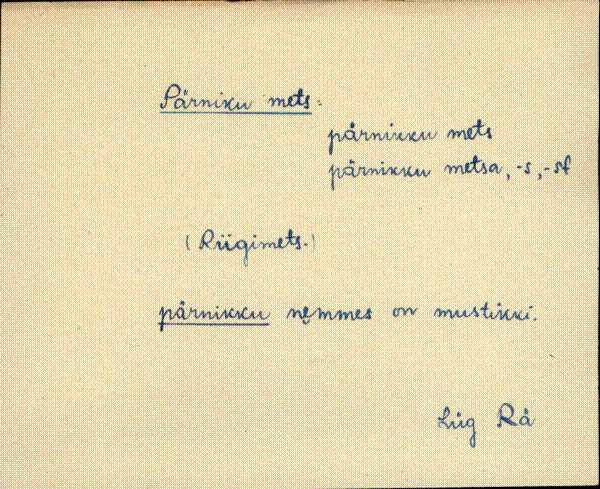 Pärniku mets:
pärnikku mets
pärnikku metsa, -s, -st
(Riigimets.)
pärnikku nęmmes on mustikki.
Lüg Rä